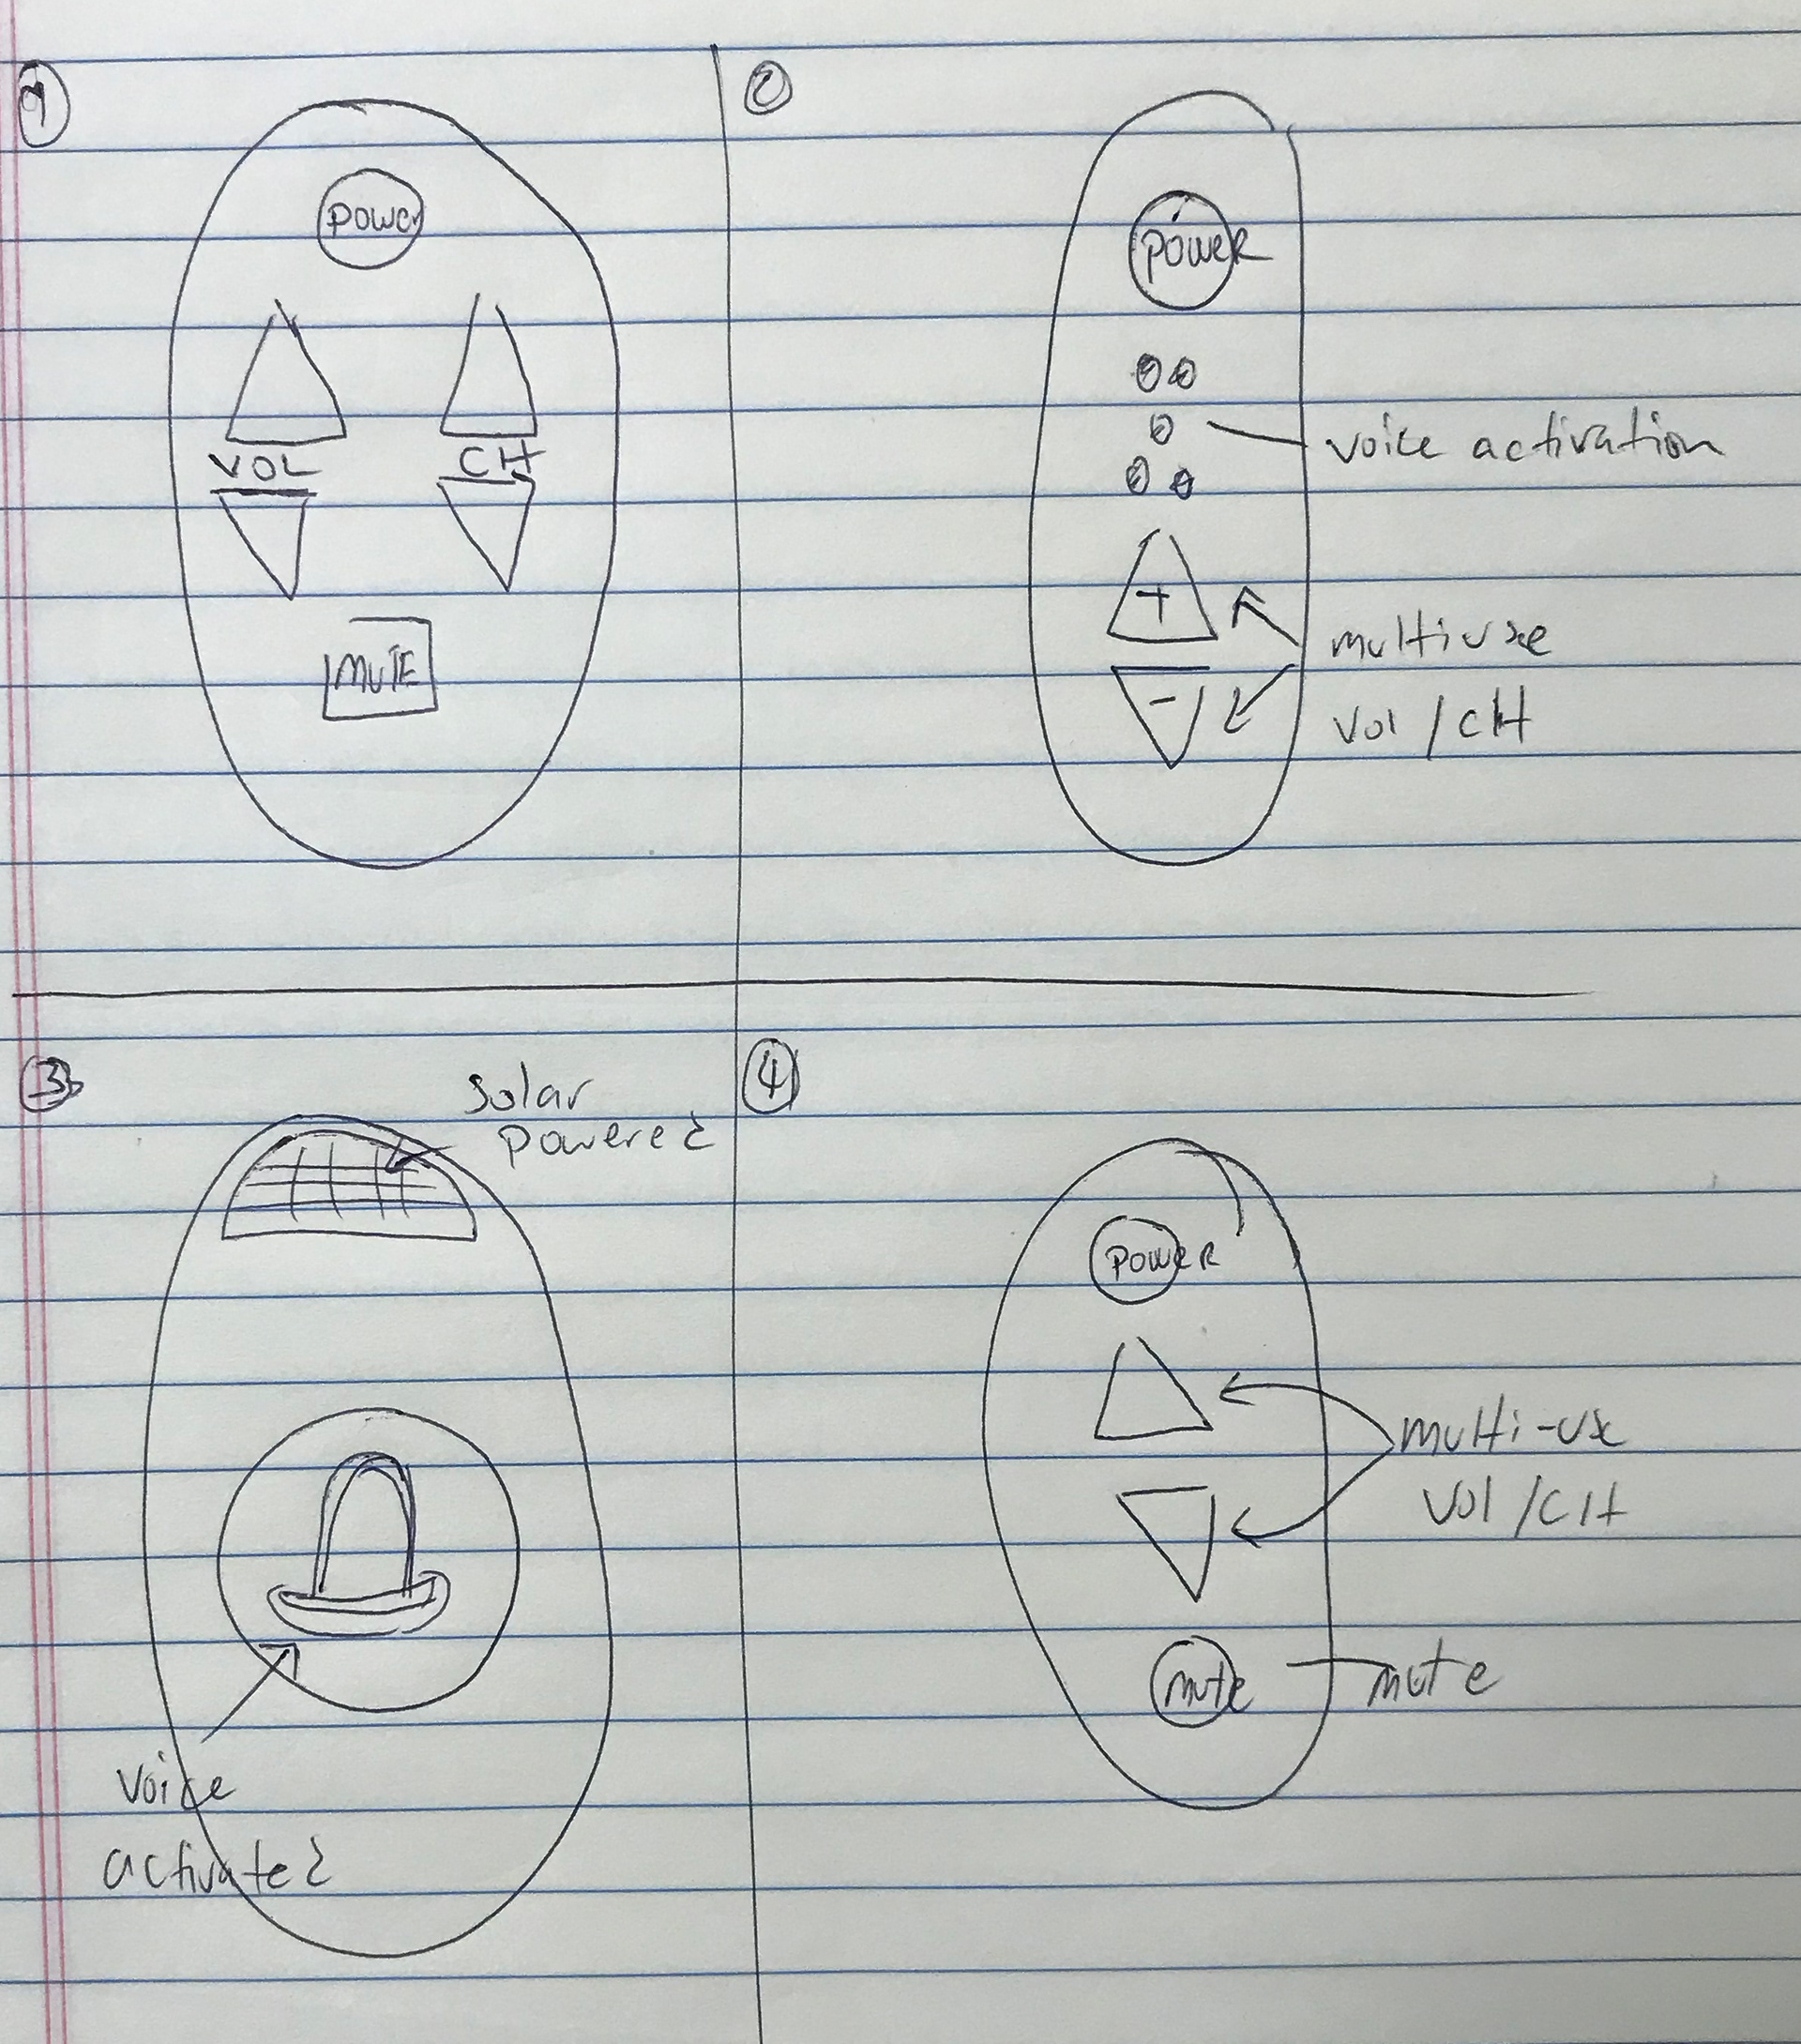 1
Power
VOL
CH
MUTE
2
POWER
voice activation
+
multiuse
-
Vol / CH
3
Solar
Powered
voice
activated
4
POWER
multi-use
Vol / CH
mute
mute